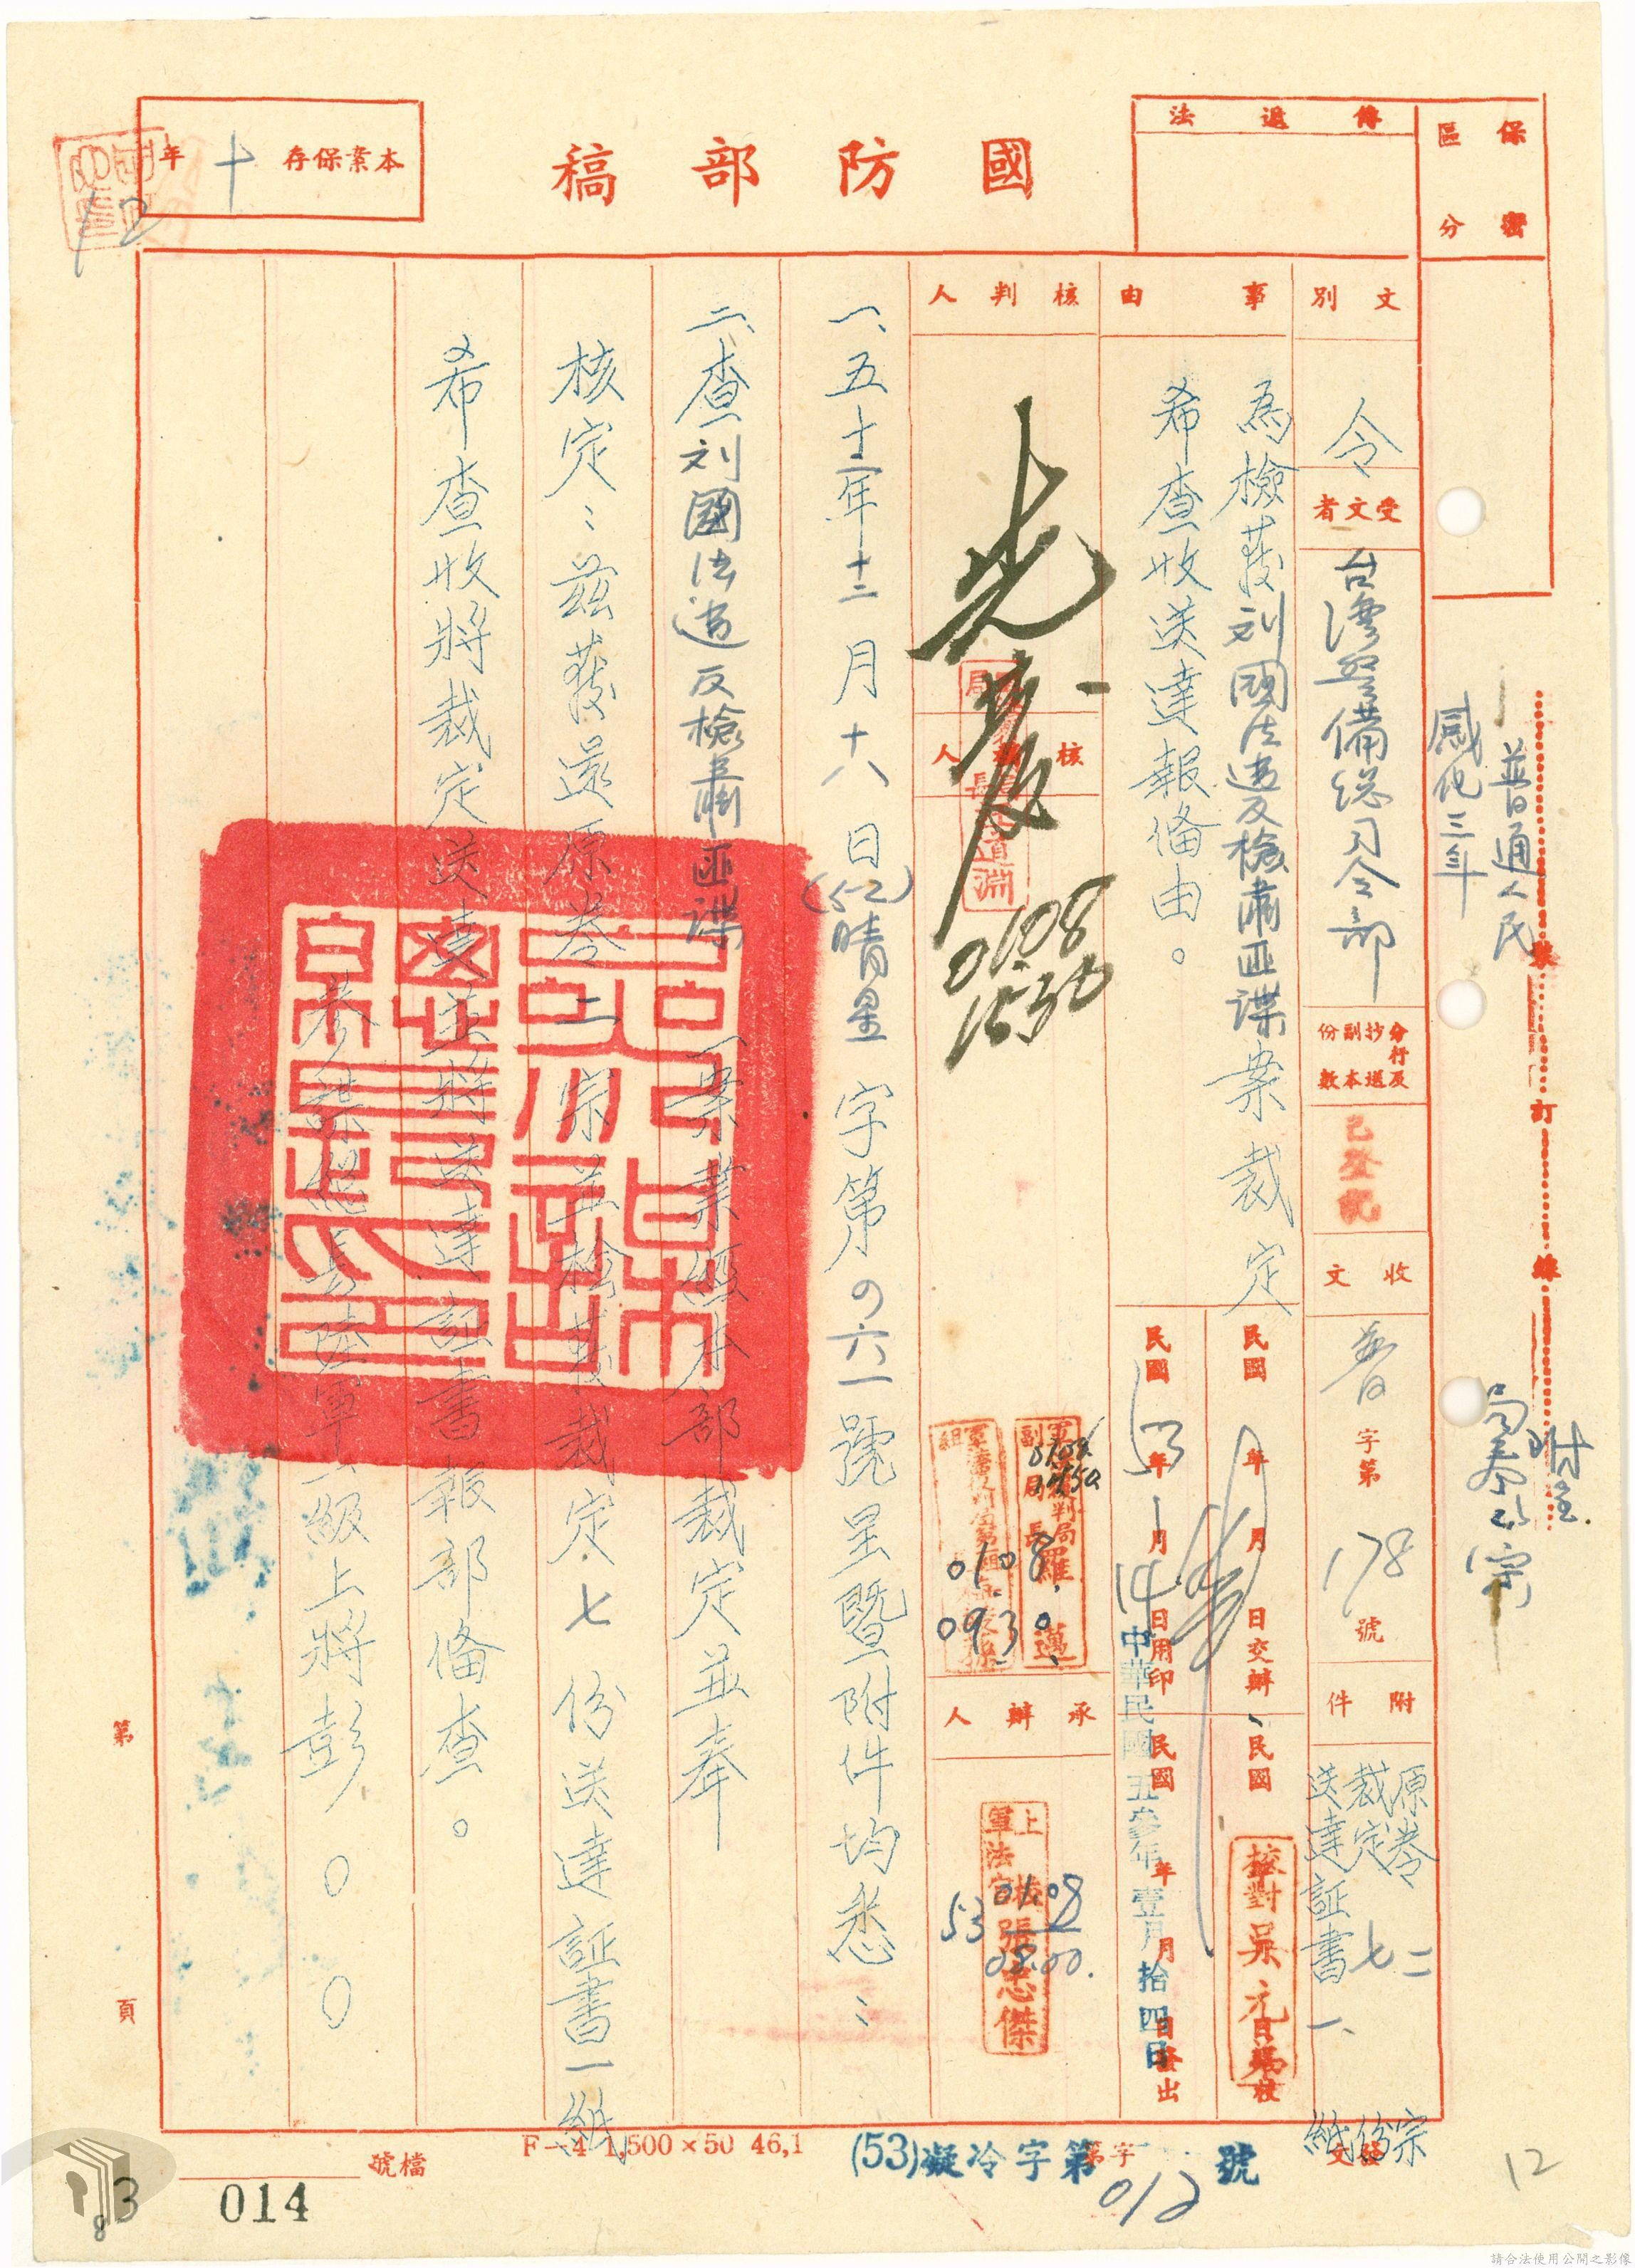 國防部稿
本案保存十年
傳遞法
保密區分
文別
令
受文者
台灣警備總司令部
分行及抄送副本份數
已登記
收文
普字第178號
附件
原卷二宗
裁定七份
送達証書一紙
事由
為檢發刘國法違反檢肅匪諜案裁定
希查收送達報備由。
民國 年 月 日交辦
民國53年1月14日用印
民國
校對吳元
民國 年 月 日發出
中華民國五參年壹月拾四日
核判人
0108
1530
核稿人
軍法覆判局副局長羅邁
0108
0930
承辦人
上校軍法官張志傑
53 0108
08.00.
一、五十二年十二月十八日(52)晴星字第0六一號呈暨附件均悉:
二、查刘國法違反檢肅匪諜一案業經本部裁定並奉
核定:茲發還原卷二宗並檢發裁定七份送達証書一紙
希查收將裁定送達並將送達証書報部備查。
參謀總長陸軍一級上將彭〇〇
普通人民
感化三年
裝訂線
第
頁
檔號
F—4 1,500×50 46,1
(53)凝冷字第012號
發文
字第
014
3
8
12
12
請合法使用公開之影像